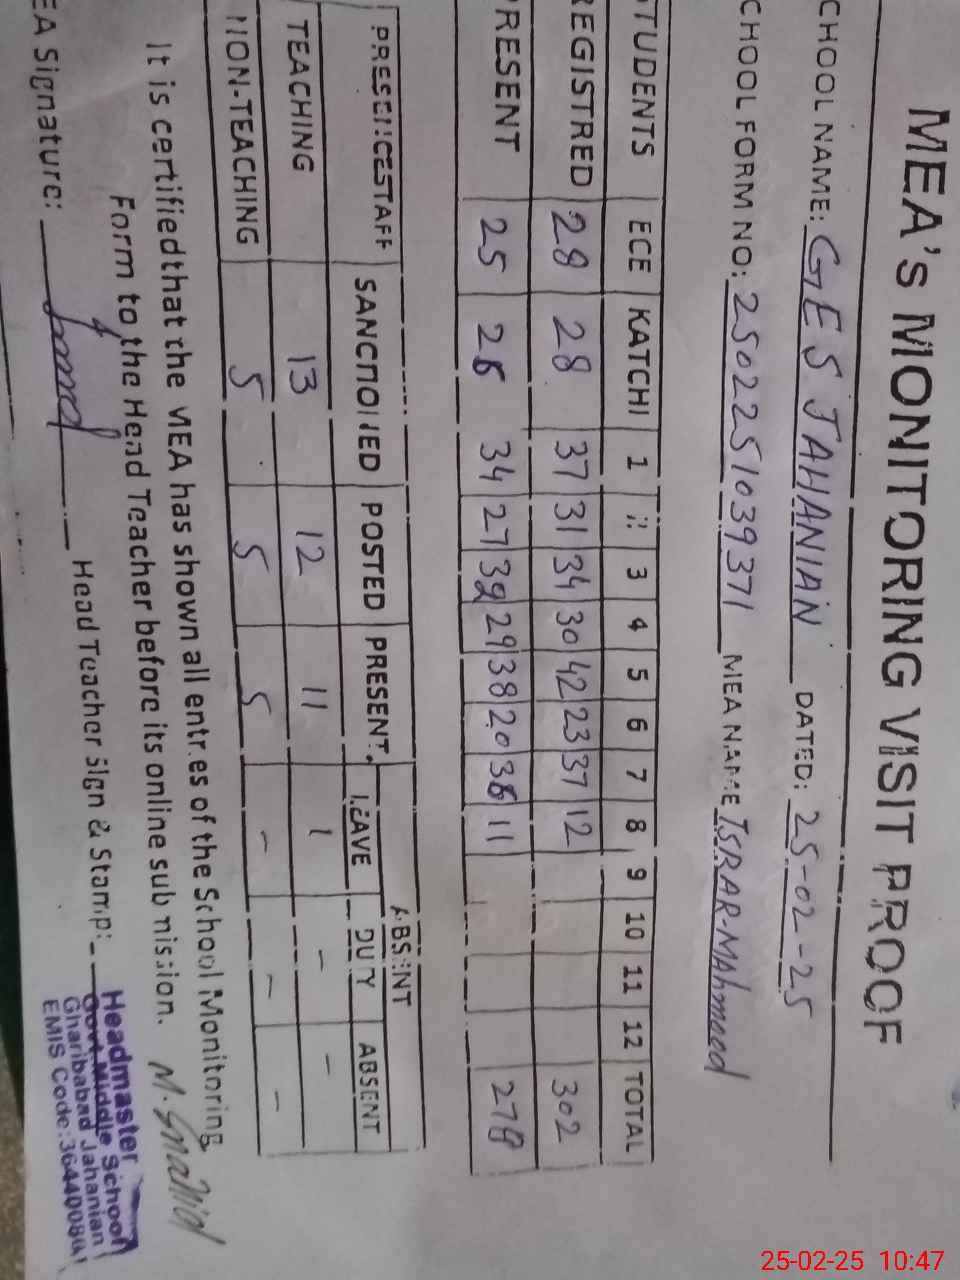 MEA's MONITORING VISIT PROOF
CHOOL NAME: GES JAHANIAN DATED: 25-02-25
CHOOL FORM NO: 250225103971 MEA NAME ISRAR MAhmood
STUDENTS ECE KATCHI 1 2 3 4 5 6 7 8 9 10 11 12 TOTAL
REGISTRED 28 28 37 31 34 30 42 23 37 12 302
PRESENT 25 26 34 27 32 29 38 20 36 11 278
PRESENCE STAFF SANCTIONED POSTED PRESENT ABSENT
LEAVE DUTY ABSENT
TEACHING 13 12 11 1 - -
NON-TEACHING 5 5 5 - - -
It is certified that the MEA has shown all entries of the School Monitoring
Form to the Head Teacher before its online submission.
EA Signature: Head Teacher Sign & Stamp:
Headmaster
Govt Middle School
Gharibabad Jahanian
EMIS Code:
25-02-25 10:47